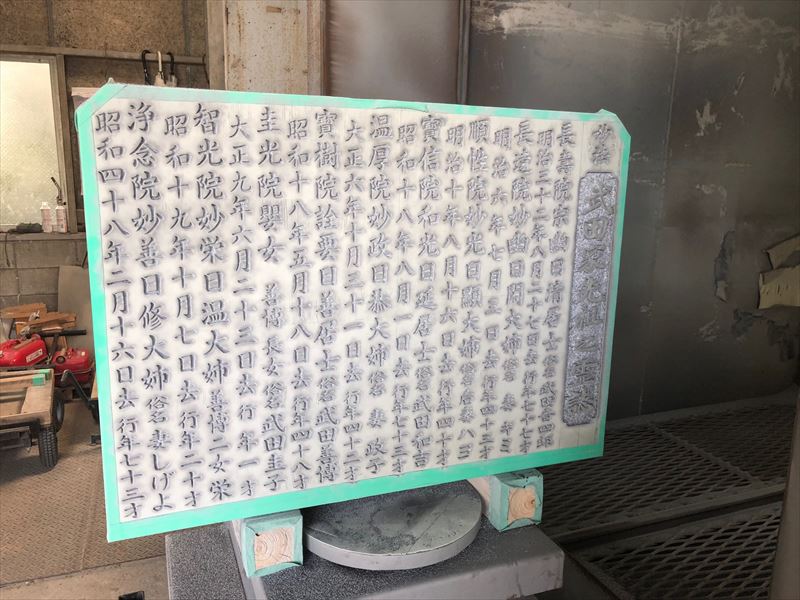 武田家先祖之霊
長壽院宗幽日清居士 俗名 武田喜四郎
明治三十二年八月二十七日去 行年七十七才
長遠院妙幽日閑大姉 俗名 妻
明治六年七月三日去 行年四十三才
順性院妙光日顯大姉 俗名 后妻 八三
明治十年八月十六日去 行年四十才
寶信院和光日延居士 俗名 武田和吉
昭和十八年八月一日去 行年七十三才
温厚院妙政日恭大姉 俗名 妻 政子
大正六年十月三十一日去 行年四十二才
寶樹院詮要日善居士 俗名 武田善傳
昭和十八年五月十八日去 行年四十八才
圭光院嬰女 善傳長女 俗名 武田圭子
大正九年六月二十三日去 行年一才
智光院妙栄日温大姉 善傳二女 栄
昭和十九年十月七日去 行年二十才
浄念院妙善日修大姉 俗名 妻しげよ
昭和四十八年二月十六日去 行年七十三才